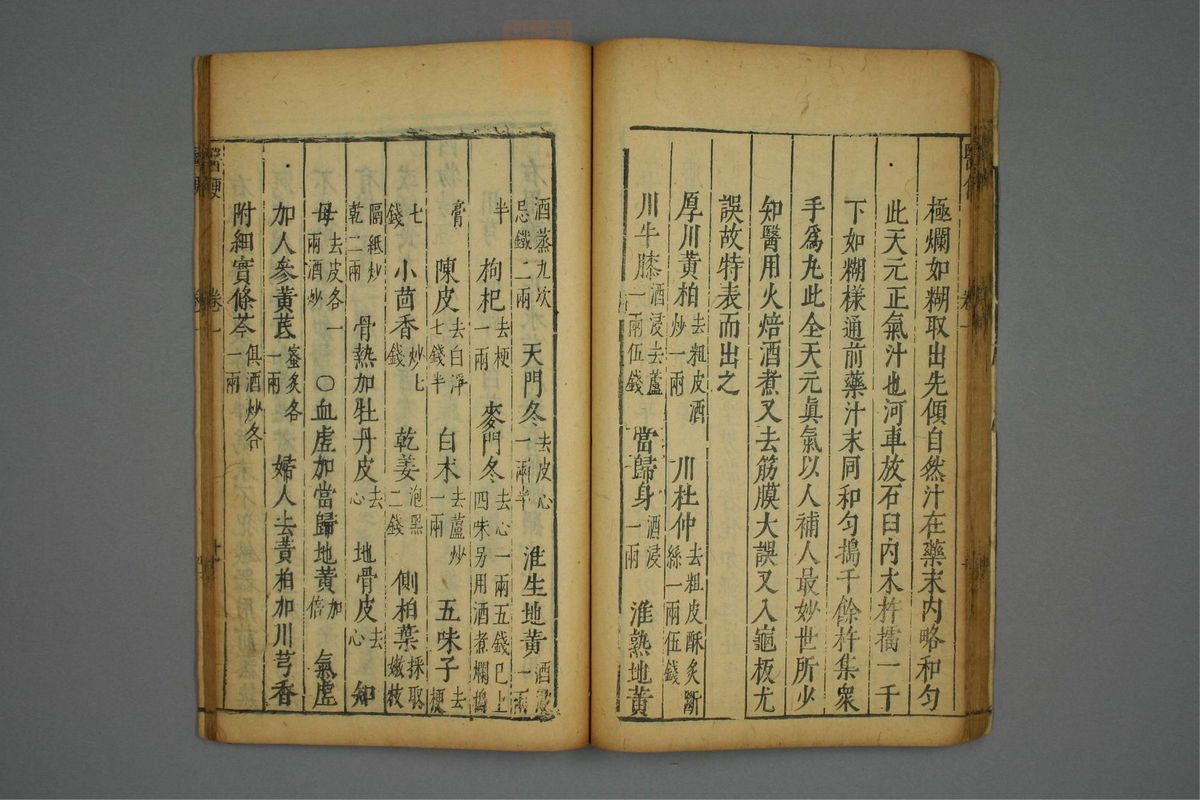 極爛如糊取出先傾自然汁在藥末內略和勻
此天元正氣汁也河車放石臼內木杵擂一千
下如糊樣通前藥汁末同和勻搗千餘杵集衆
手爲丸此全天元眞氣以人補人最妙世所少
知醫用火焙酒煮又去筋膜大誤又入龜板尤
誤故特表而出之
厚川黃柏去粗皮酒炒一兩　川杜仲去粗皮酥炙斷絲一兩伍錢
川牛膝酒浸去蘆一兩伍錢　當歸身酒浸一兩　淮熟地黃
酒蒸九次忌鐵二兩　天門冬去皮心一兩半　淮生地黃酒浸一兩
半　枸杞去梗一兩　麥門冬去心一兩五錢已上四味另用酒煮爛搗
膏　陳皮去白淨七錢半　白朮去蘆炒一兩　五味子去梗
七錢　小茴香炒七錢　乾姜泡黑二錢　側柏葉採取嫩枝
隔紙炒乾二兩　骨熱加牡丹皮去心　地骨皮去心　知
母去皮各一兩酒炒　〇血虛加當歸地黃加倍　氣虛
加人參黃芪蜜炙各一兩　婦人去黃柏加川芎香
附細實條芩俱酒炒各一兩
卷一